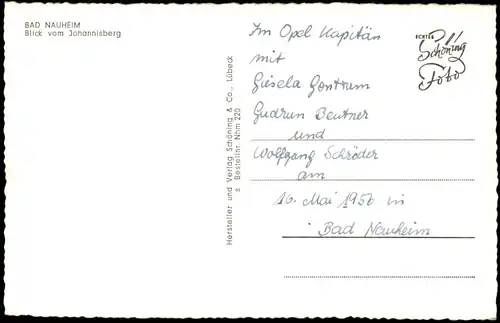 BAD NAUHEIM
Blick vom Johannisberg
Hersteller und Verlag Schöning & Co., Lübeck
8 Bestellnr. Nhm 220
ECHTES
Schöning
Foto
Im Opel Kapitän
mit
Gisela Gontrum
Gudrun Beutner
und
Wolfgang Schröder
am
16. Mai 1956 in
Bad Nauheim